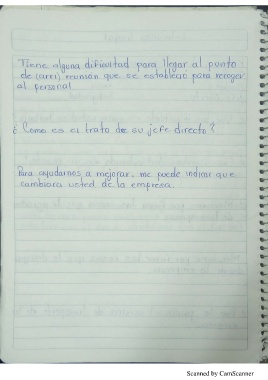 Tiene alguna dificultad para llegar al punto
de (area) reunión que se estableció para recoger
al personal
¿ Como es el trato de su jefe directo ?
Para ayudarnos a mejorar, me puede indicar que
cambiara usted de la empresa.
Scanned by CamScanner